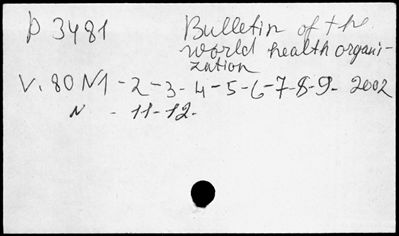 P 3481 Bulletin of the
world health organi-
zation
V. 80 N1 - 2 - 3 - 4 - 5 - 6 - 7 - 8 - 9 - 2002
N - 11 - 12 -